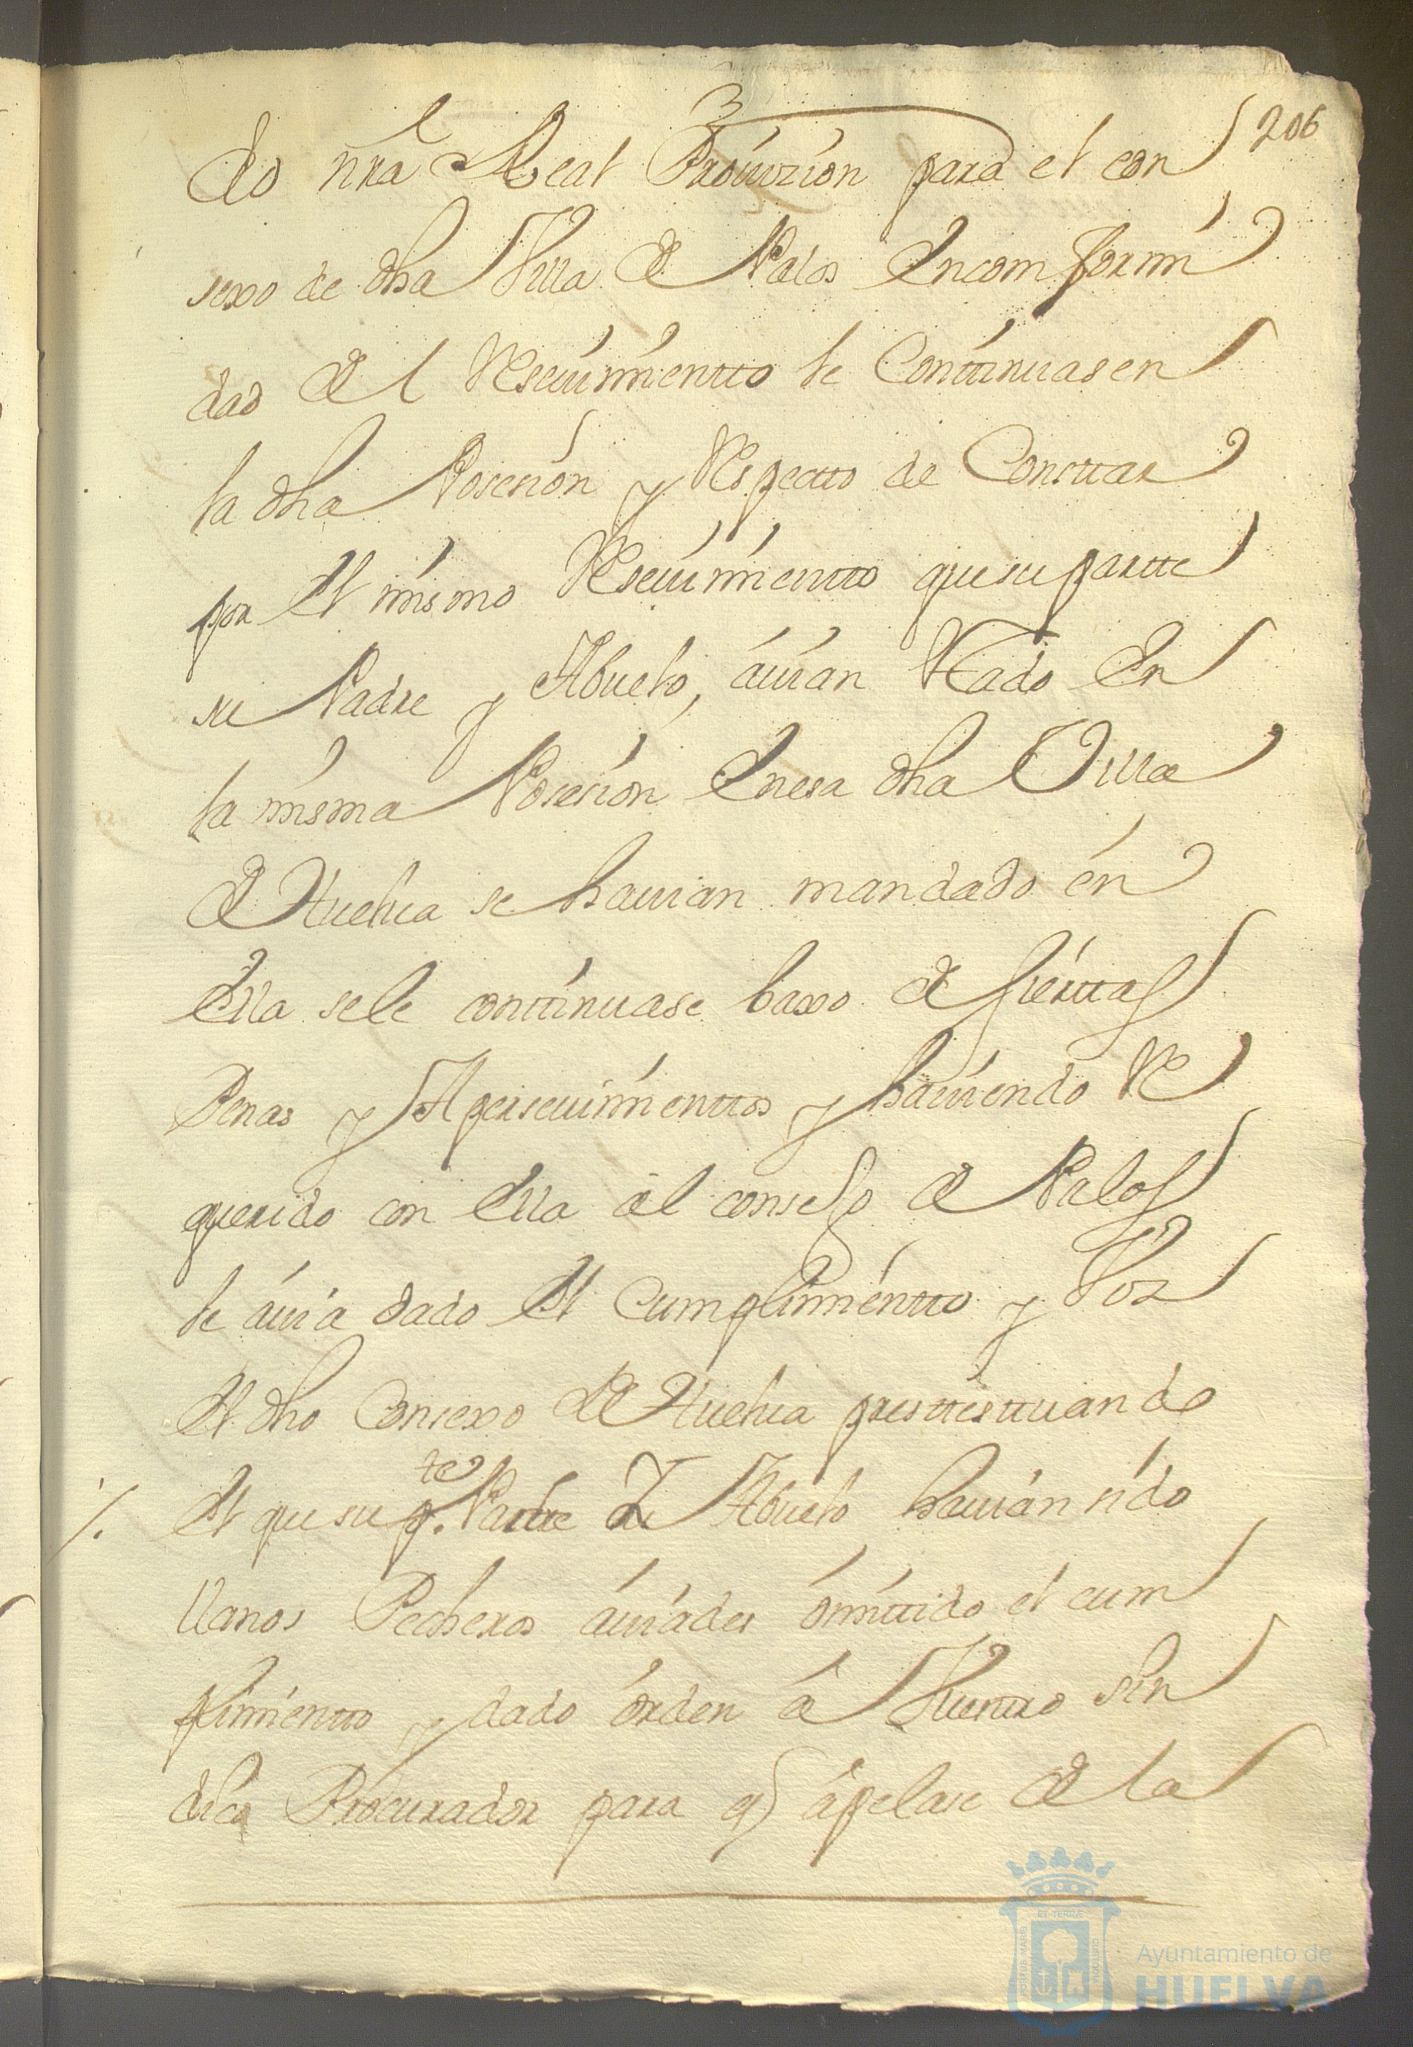 206
do nra Real Provizion para el con
sexo de dha Villa de Palos Encomformi
dad de el Reseuimientto le Conttinuasen
la dha Posesion y Respectto de Consttar
por El mismo Reseuimientto que su partte
su Padre y Abuelo, auian estado En
la misma Posesion En esa dha Villa
de Huelua se hauian mandado en
Ella se le conttinuase baxo de sierttas
Penas y Aperseuimienttos y hauiendo Re
querido con Ella al consejo de Palos
le auia dado El Cumplimientto y Vos
El dho Consexo de Huelua presttesttuando
El que su p.te Padre y Abuelo hauian sido
llanos Pecheros auiades omittido el cum
plimientto y dado orden a Vuestro sin
dico Procurador para q apelase de la
Ayuntamiento de
HUELVA